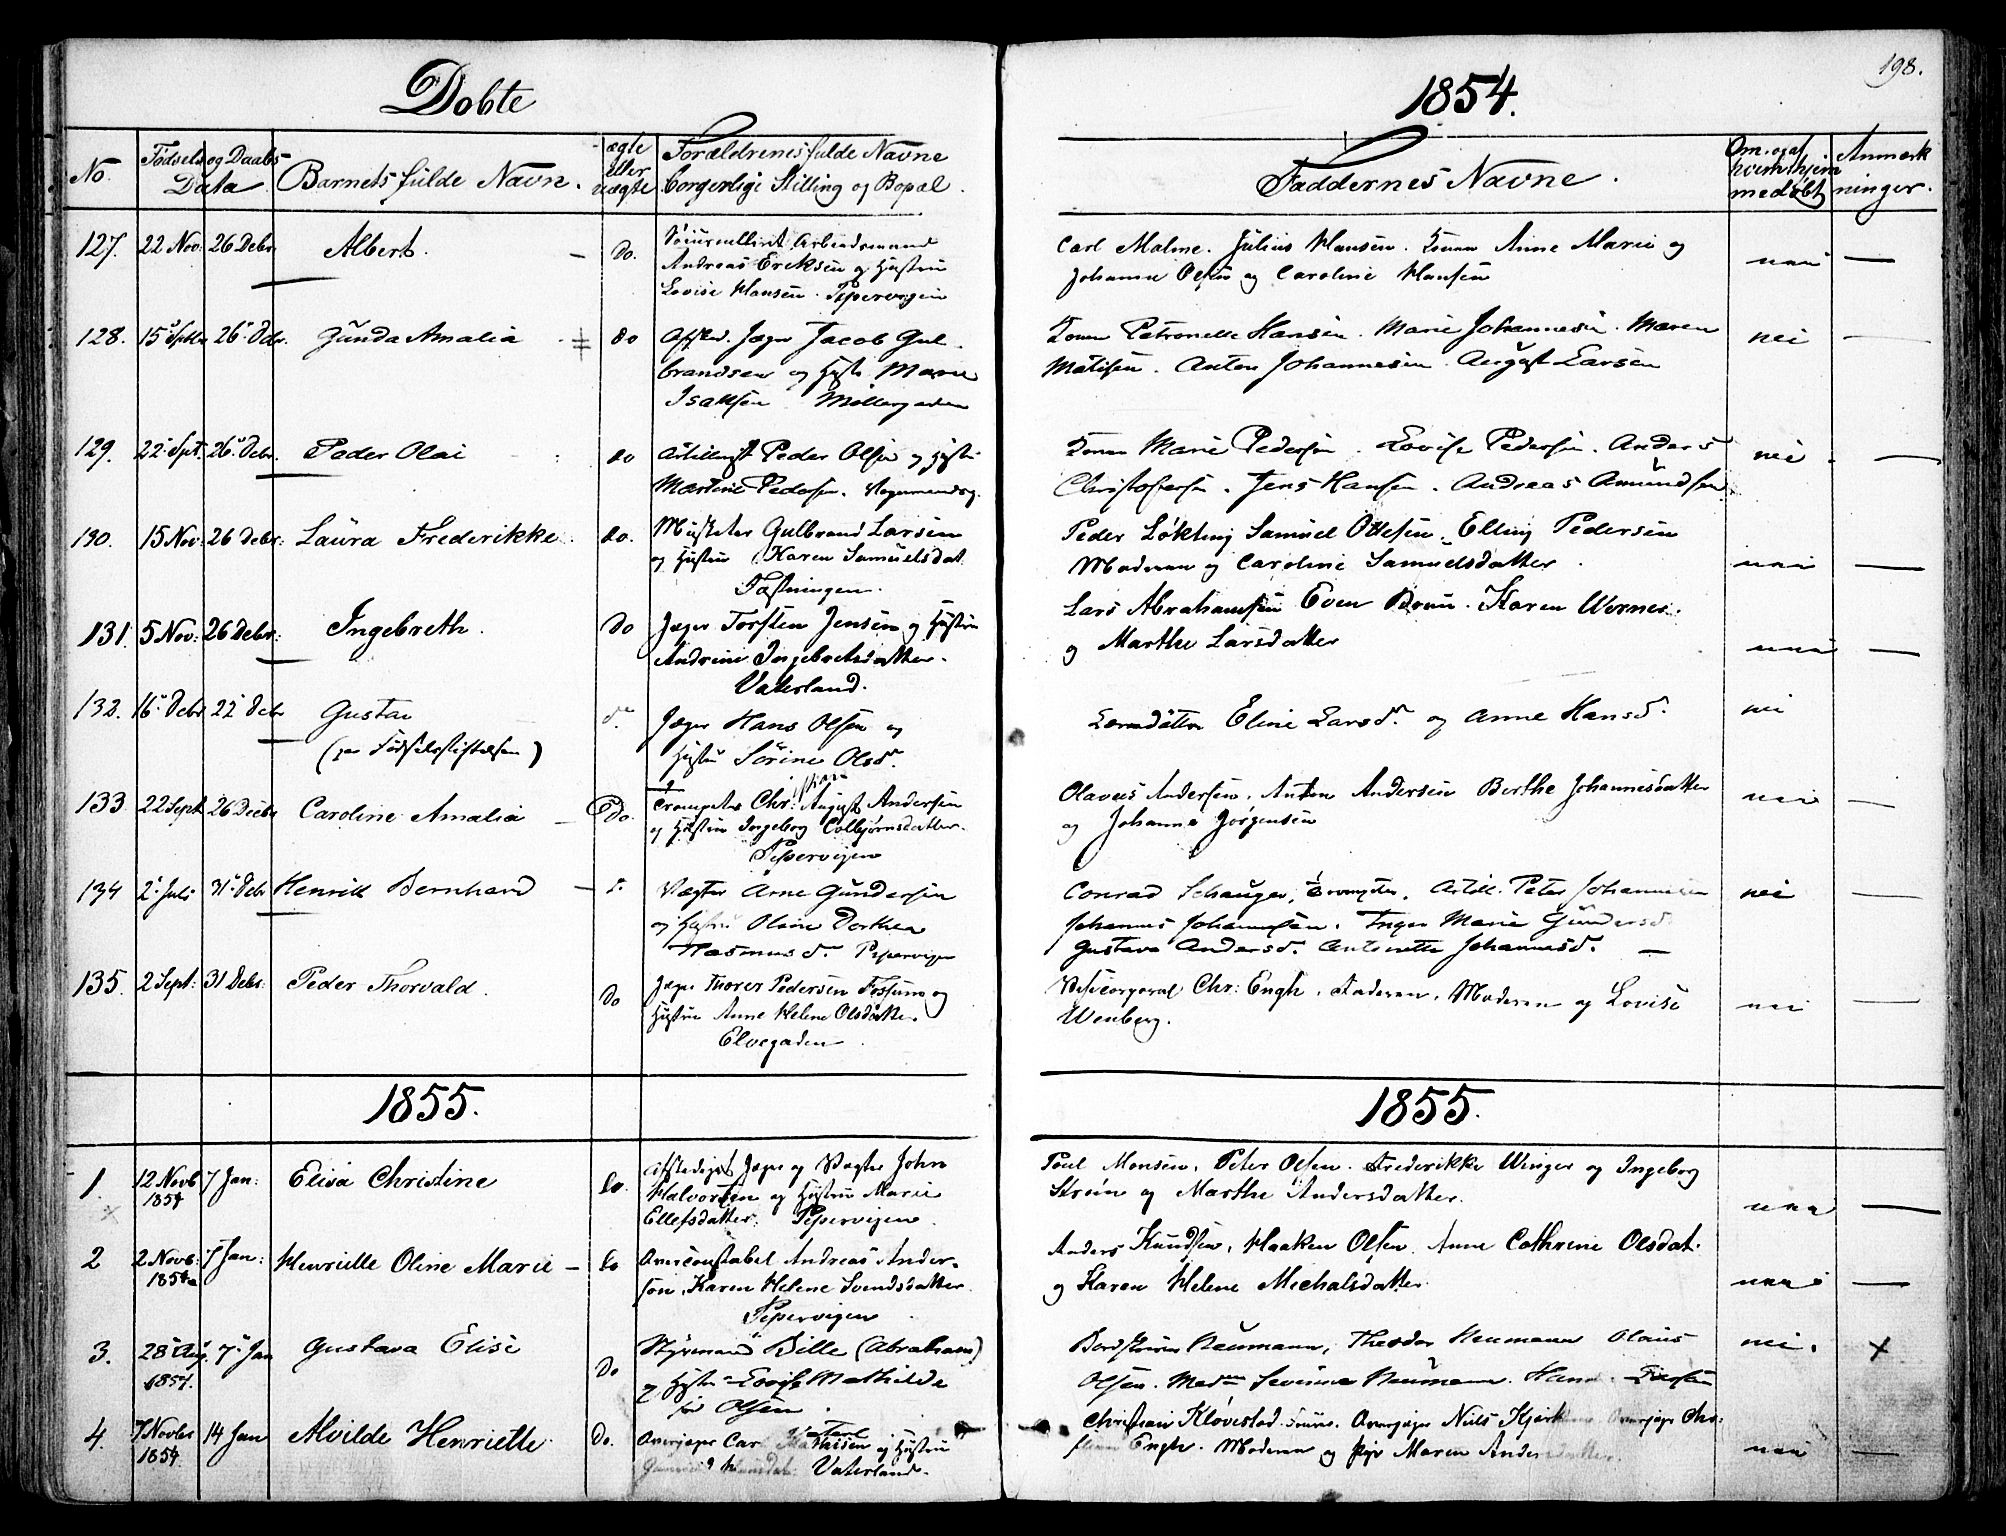 Døbte
No. Fødsels og Daabs Data Barnets fulde Navn. ægte eller uægte Forældrenes fulde Navne borgerlige Stilling og Bopæl.
127. 22 Nov: 26 Debr: Albert. do. Arbeidsmand
Andreas Eriksen og Hustru
Lovise Hansen. Pipervigen
128. 15 Septbr 26 Debr. Gunda Amalia do Afsked. Jæger Jacob Gul-
brandsen og Hustr. Marie
Isaksen Møllergaden
129. 22 Sept. 26 Debr. Peder Olai do Artillerist Peder Olsen og Hustru
Martine Pedersen. Vognmandsg.
130. 15 Nov: 26 Debr: Laura Frederikke. do. Musketer Gulbrand Larsen
og Hustru Karen Samuelsdat
Fæstningen.
131. 5 Nov: 26 Debr: Ingebreth. do Jæger Torsten Jensen og Hustru
Andrine Ingebretsdatter.
Vaterland.
132. 16 Debr 22 Debr Gustav d. Jæger Hans Olsen og
(paa Fødselsstiftelsen) Hustru Sørine Olsd.
133 22 Sept 26 Decbr Caroline Amalia do. Trompeter Chr: August Andersen
og Hustru Ingeborg Colbjørnsdatter.
Pipervigen
134 2 Juli 31 Debr Henrik Bernhard d. Vægter Arne Gundersen
og Hustru Oline Dorthea
Rasmusd. Pipervigen
135. 2 Sept: 31 Debr: Peder Thorvald. do Jæger Thorer Pedersen Fossum og
Hustru Anne Helene Olsdatter.
Elvegaden
1855.
1. 12 Novb 1854 7 Jan: Elisa Christine do. afskediget Jæger og Vægter John
Halvorsen og Hustru Marie
Ellefsdatter. Pipervigen.
2 2 Novb: 1854 7 Jan: Henriette Oline Marie do Overconstabel Andreas Ander-
sen, Karen Helene Svendsdatter.
Pipervigen
3. 28 Aug. 1854. 7 Jan Gustava Elise do Styrmand Bille (Abraham)
og Hustru Lovise Mathilde
Olsen.
4. 7 Novbr 1854 14 Jan Alvilde Henriette do. Overjæger Carl Mathisen og Hustru
Vaterland.
198.
1854.
Faddernes Navne. Om og af hvem hjemmedøbt Anmærkninger.
Carl Malme. Julius Hansen. Konen Anne Marie og
Johanne Olsen og Caroline Hansen nei
Konen Petronelle Hansen. Marie Johannesen. Maren nei
Matisen. Anton Johannesen. August Larsen
Konen Marie Pedersen. Lovise Pedersen. Anders nei
Christofersen. Jens Hansen. Andreas Amundsen
Peder Løkting Samuel Ottesen. Elling Pedersen
Moderen og Caroline Samuelsdatter. nei
Lars Abrahamsen Even Bruun. Karen Werner.
og Marthe Larsdatter nei
Eline Larsd. og Anne Hansd. nei
Olaves Andersen. Anton Andersen Berthe Johannesdatter nei
og Johanne Jørgensen
Conrad Schauger, Trompeter. Artill. Peter Johannesen nei
Johannes Johannesen. Inger Marie Gundersd
Gustava Andersd. Antonette Johannesd.
Vicecorporal Chr: Engh. Faderen. Moderen og Lovise nei
Wenberg.
1855.
Poul Monsen. Peter Olsen. Frederikke Winger og Ingeborg
Strøm og Marthe Andersdatter. nei
Anders Knudsen, Haaken Olsen. Anne Cathrine Olsdat.
og Karen Helene Michalsdatter. nei
Neumann, Theodor Neumann Olaus nei. x
Olsen. Severine Neumann.
Christian Kløvestad Overjæger Niels Overjæger Chr:
Engh. Moderen og Pige Maren Andersdatter. nei